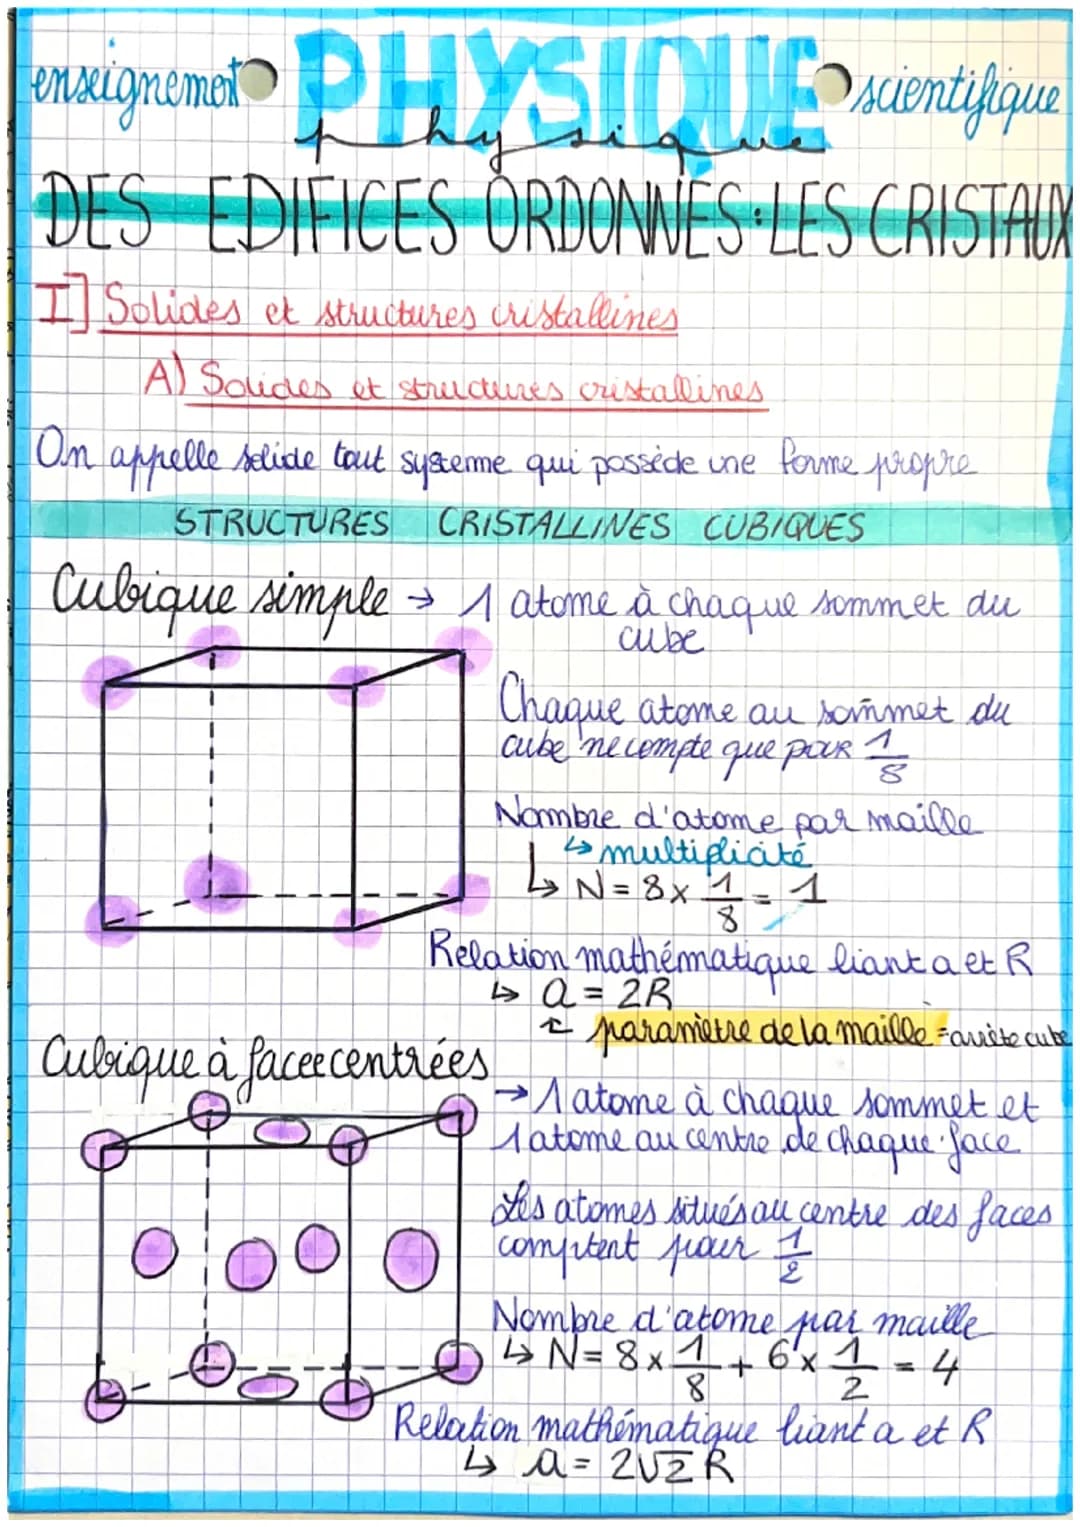 enseignement PHYSIQUE scientifique
physique
DES EDIFICES ORDONNES : LES CRISTAUX
I] Solides et structures cristallines
A) Solides et structures cristallines
On appelle solide tout systeme qui possède une forme propre
STRUCTURES CRISTALLINES CUBIQUES
Cubique simple → 1 atome à chaque sommet du
cube
Chaque atome au sommet du
cube ne compte que pour 1/8
Nombre d'atome par maille
↳ multiplicité
↳ N = 8 × 1/8 = 1
Relation mathématique liant a et R
↳ a = 2R
paramètre de la maille = arrête cube
Cubique à face centrées
→ 1 atome à chaque sommet et
1 atome au centre de chaque face
Les atomes situés au centre des faces
comptent pour 1/2
Nombre d'atome par maille
↳ N = 8 × 1/8 + 6 × 1/2 = 4
Relation mathématique liant a et R
↳ a = 2√2 R